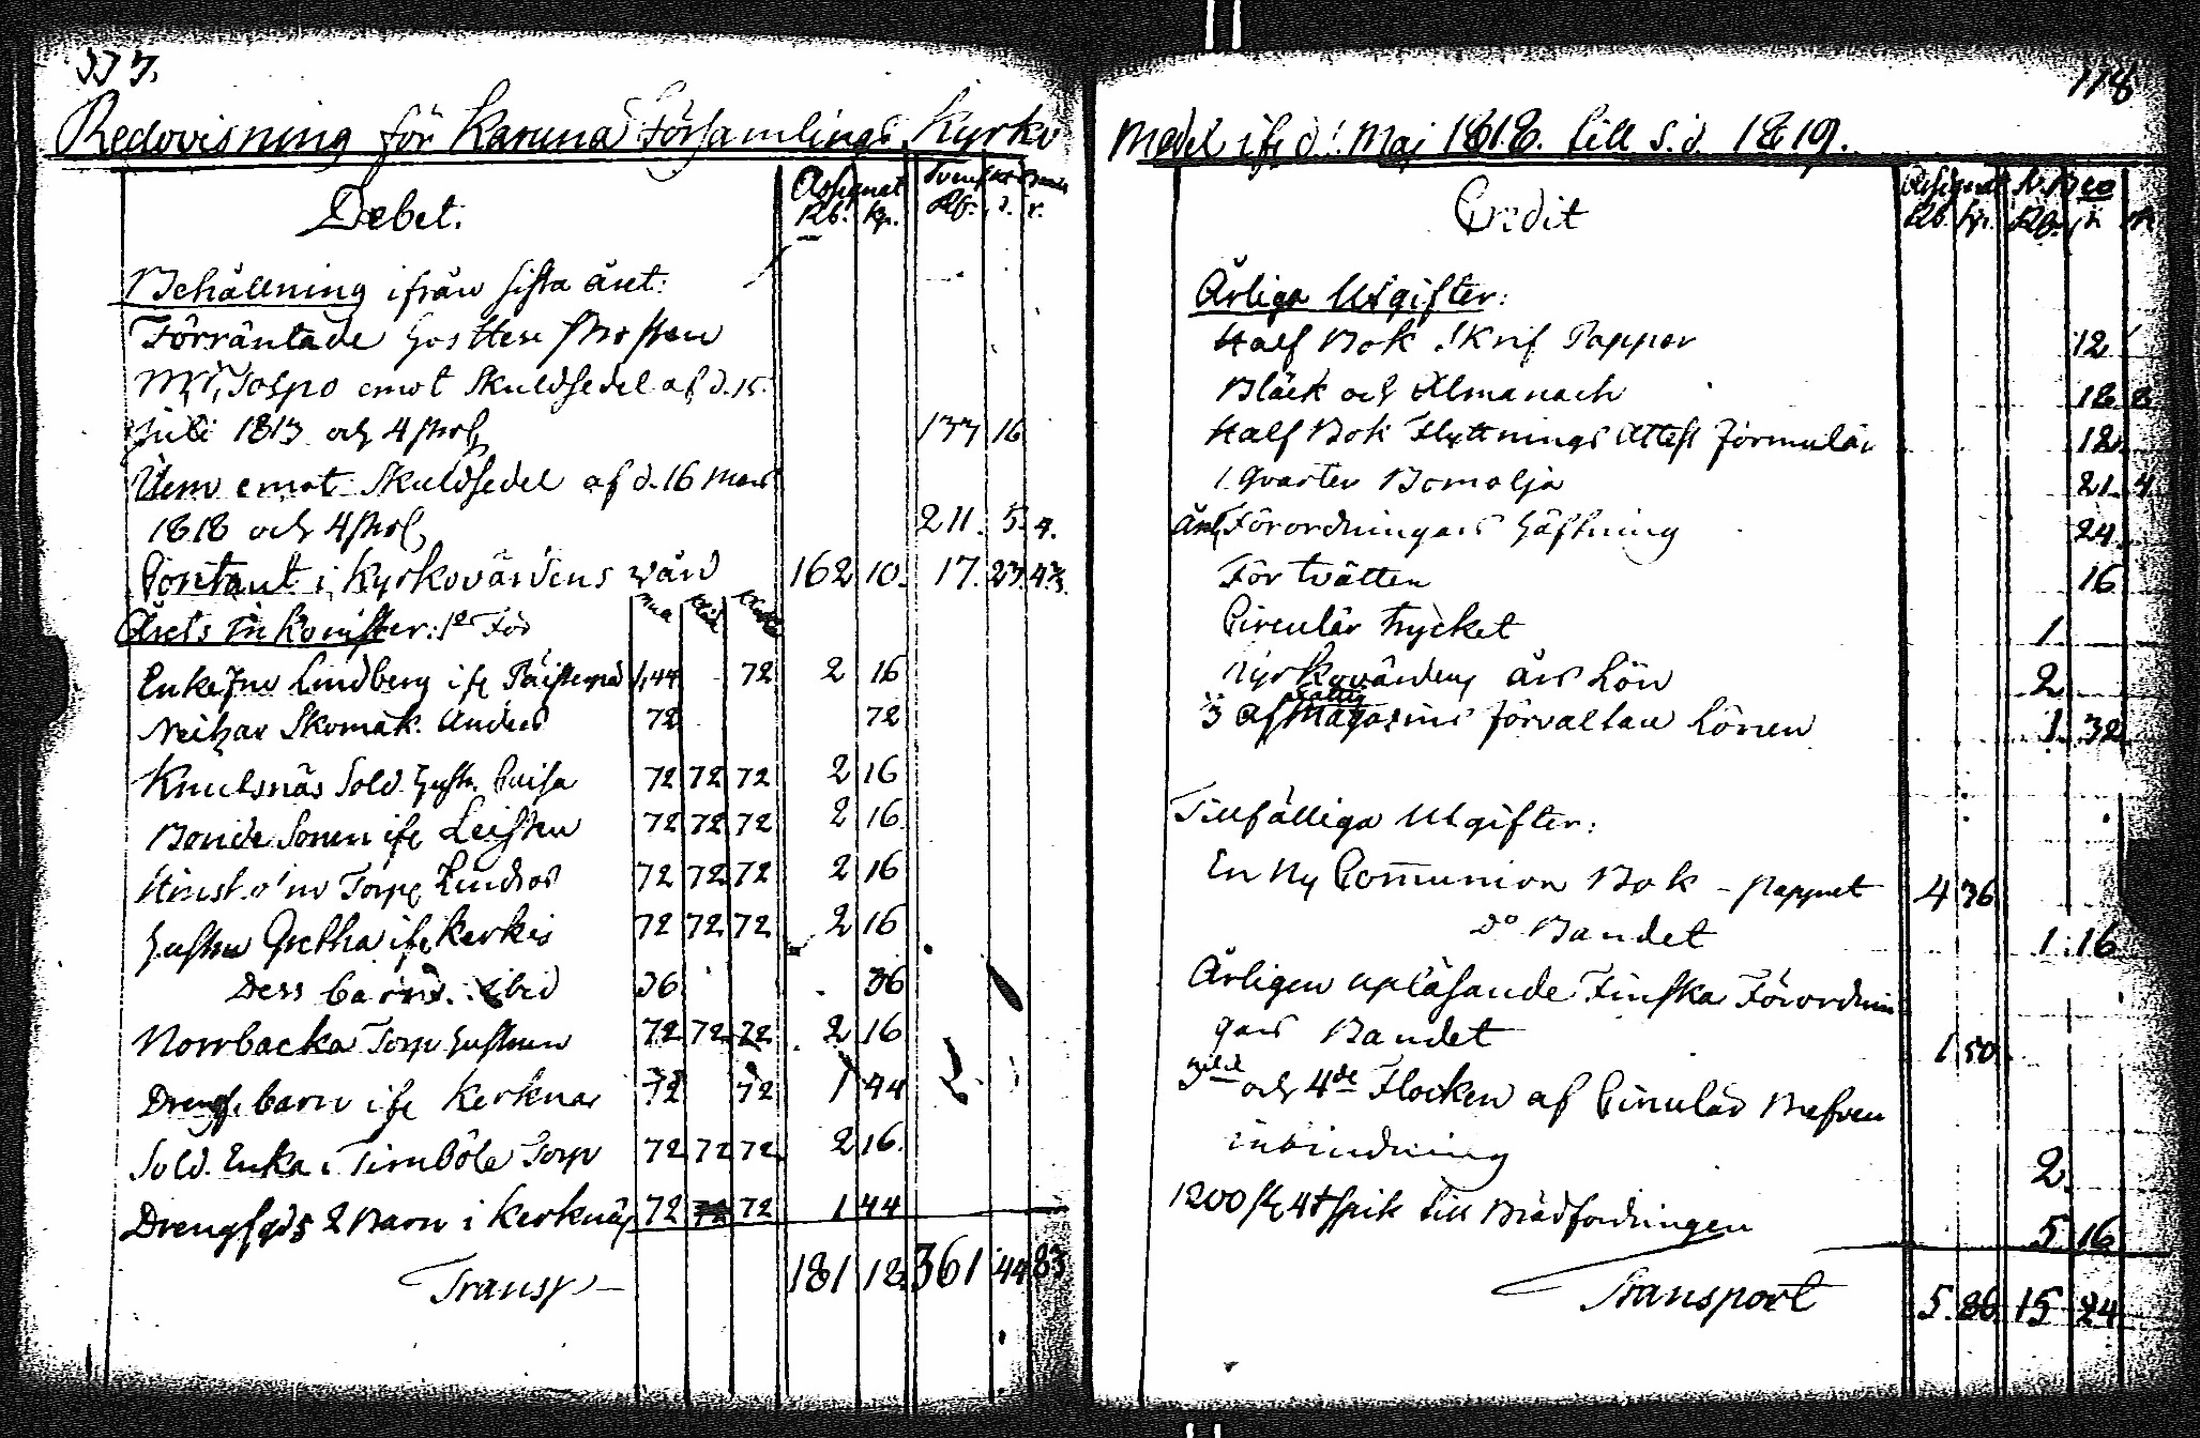 Redovisning för Karuna Församlings Kyrko
Debet.
Assignat
Rb. kp.
Behållning ifrån sista året:
Förräntade hos Herr Prosten
emot Skuldsedel af d. 15
Juli 1813 och 4 proC 133 16
emot Skuldsedel af d. 16 Mars
1818 och 4 proC 211. 5. 4.
Contant i Kyrkovärdens vård 162 10. 17. 23. 4
Årets Inkomster: För
Enkefru Lindberg ifr 1,44 72 2 16
Skomak. Anders 72 72
Knutsnäs Sold. Hustr. Caisa 72 72 72 2 16
Bonde Sonen ifr 72 72 72 2 16
72 72 72 2 16
Hustru Gretha ifr Kerkis 72 72 72 2 16
Dess barn ibid 36 36
Norrbacka Torp Hustrun 72 72 72 2 16
Drengs. barn ifr Kerknäs 72 72 1 44
Sold. Enka i Timböle Torp 72 72 72 2 16.
2 Barn i Kerknäs 72 72 72 1 44
Transp 181 12. 361 44 83
118
Medel ifr d. 1 Maj 1818. till s.d. 1819.
Credit
Assignat
Årliga Utgifter:
Half Bok Skrif Papper 12
Bläck och Almanach 18 8
Half Bok Flyttnings Attest Formulär 12
1 Qvarter Bomolja 21. 4
Förordningars häftning 24
För tvätten 16
Circulär trycket 1
Kyrkovärdens års Lön 2
af Magasins förvaltare Lönen 1. 32
Tillfälliga Utgifter:
En Ny Communion Bok – Papperet 4 36
do Bandet 1. 16
Årligen upläsande Finska Förordnin
gars Bandet 1 50
och 4de Flocken af Circulär Brefven
inbindning 2
1200 st 4t spik till Brädfordringen 5 16
Transport 5. 86 15 24